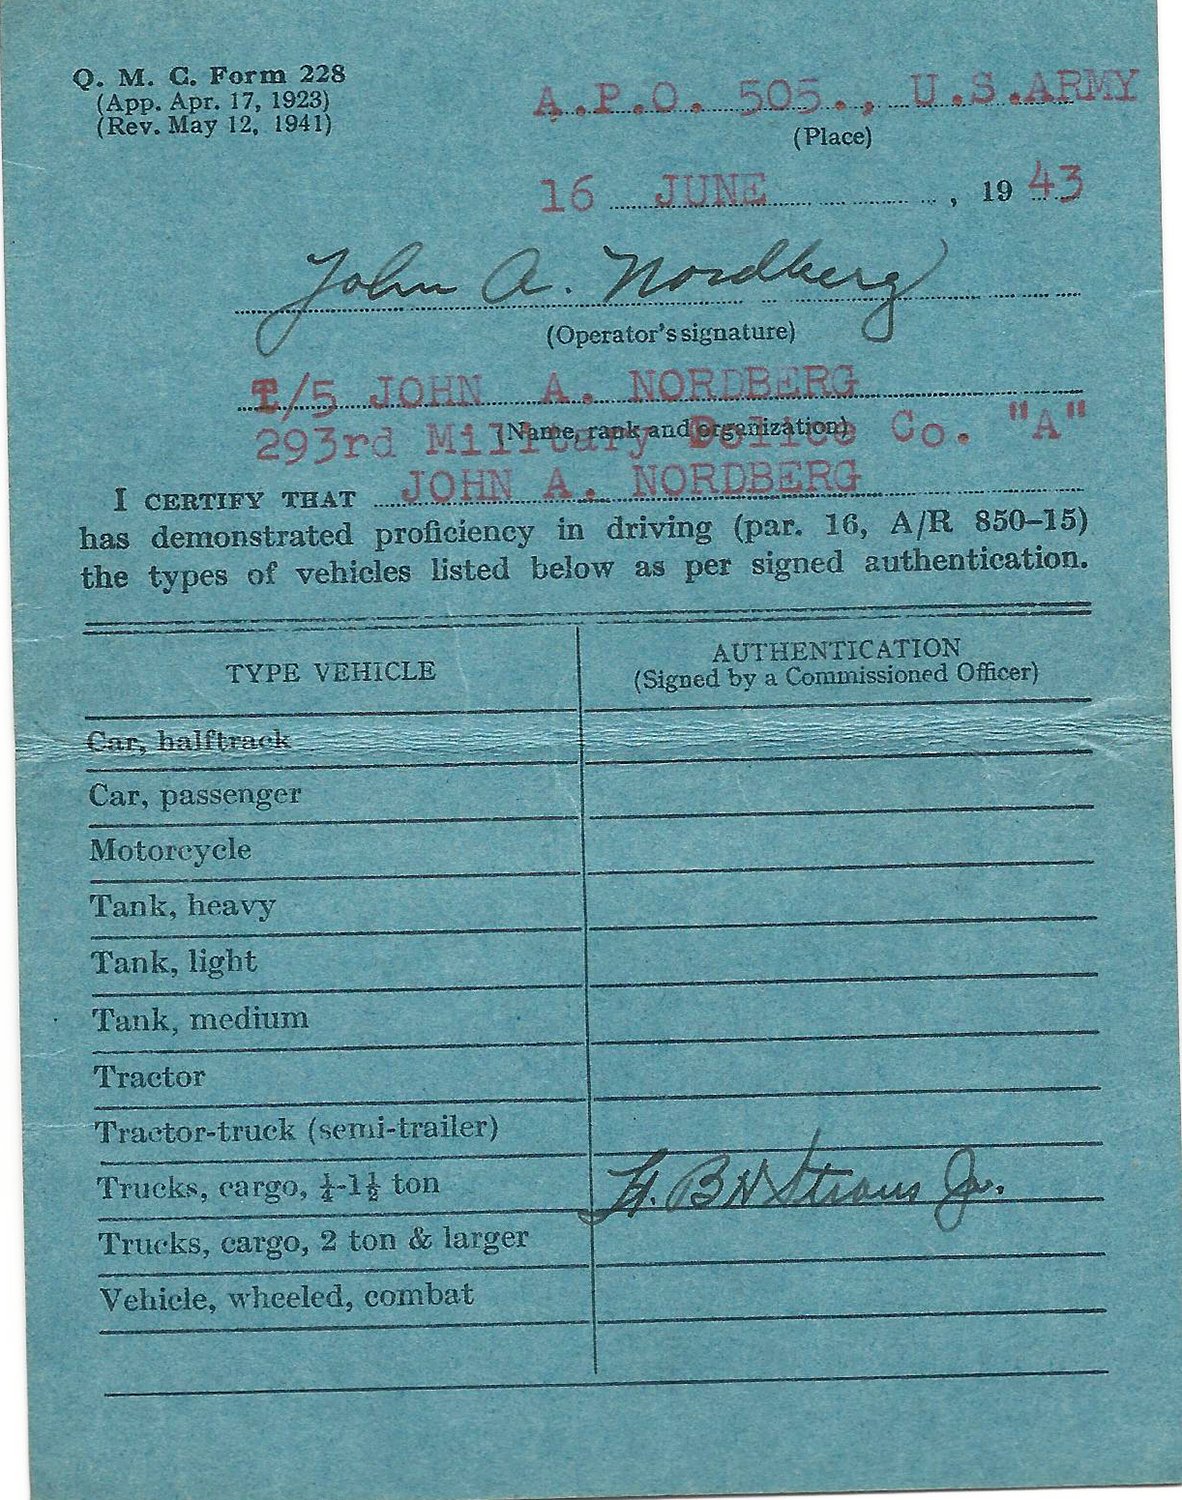 Q. M. C. Form 228
(App. Apr. 17, 1923)
(Rev. May 12, 1941)
A.P.O. 505., U.S.ARMY
(Place)
16 JUNE, 19 43
John A. Nordberg
(Operator's signature)
T/5 JOHN A. NORDBERG
(Name, rank and organization)
293rd Military Police Co. "A"
I CERTIFY THAT JOHN A. NORDBERG
has demonstrated proficiency in driving (par. 16, A/R 850-15)
the types of vehicles listed below as per signed authentication.
TYPE VEHICLE
AUTHENTICATION
(Signed by a Commissioned Officer)
Car, halftrack
Car, passenger
Motorcycle
Tank, heavy
Tank, light
Tank, medium
Tractor
Tractor-truck (semi-trailer)
Trucks, cargo, ¼-1½ ton Lt. B H Straus Jr.
Trucks, cargo, 2 ton & larger
Vehicle, wheeled, combat